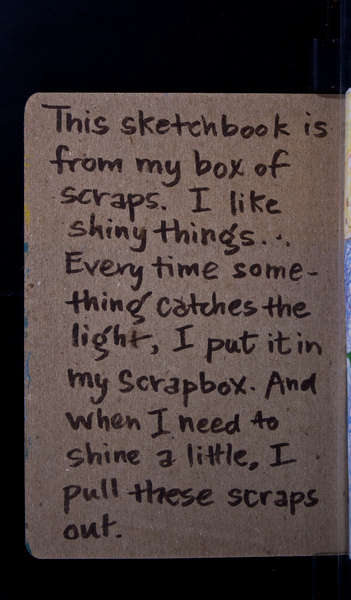 This sketchbook is
from my box of
scraps. I like
shiny things...
Every time some-
thing catches the
light, I put it in
my Scrapbox. And
when I need to
shine a little, I
pull these scraps
out.